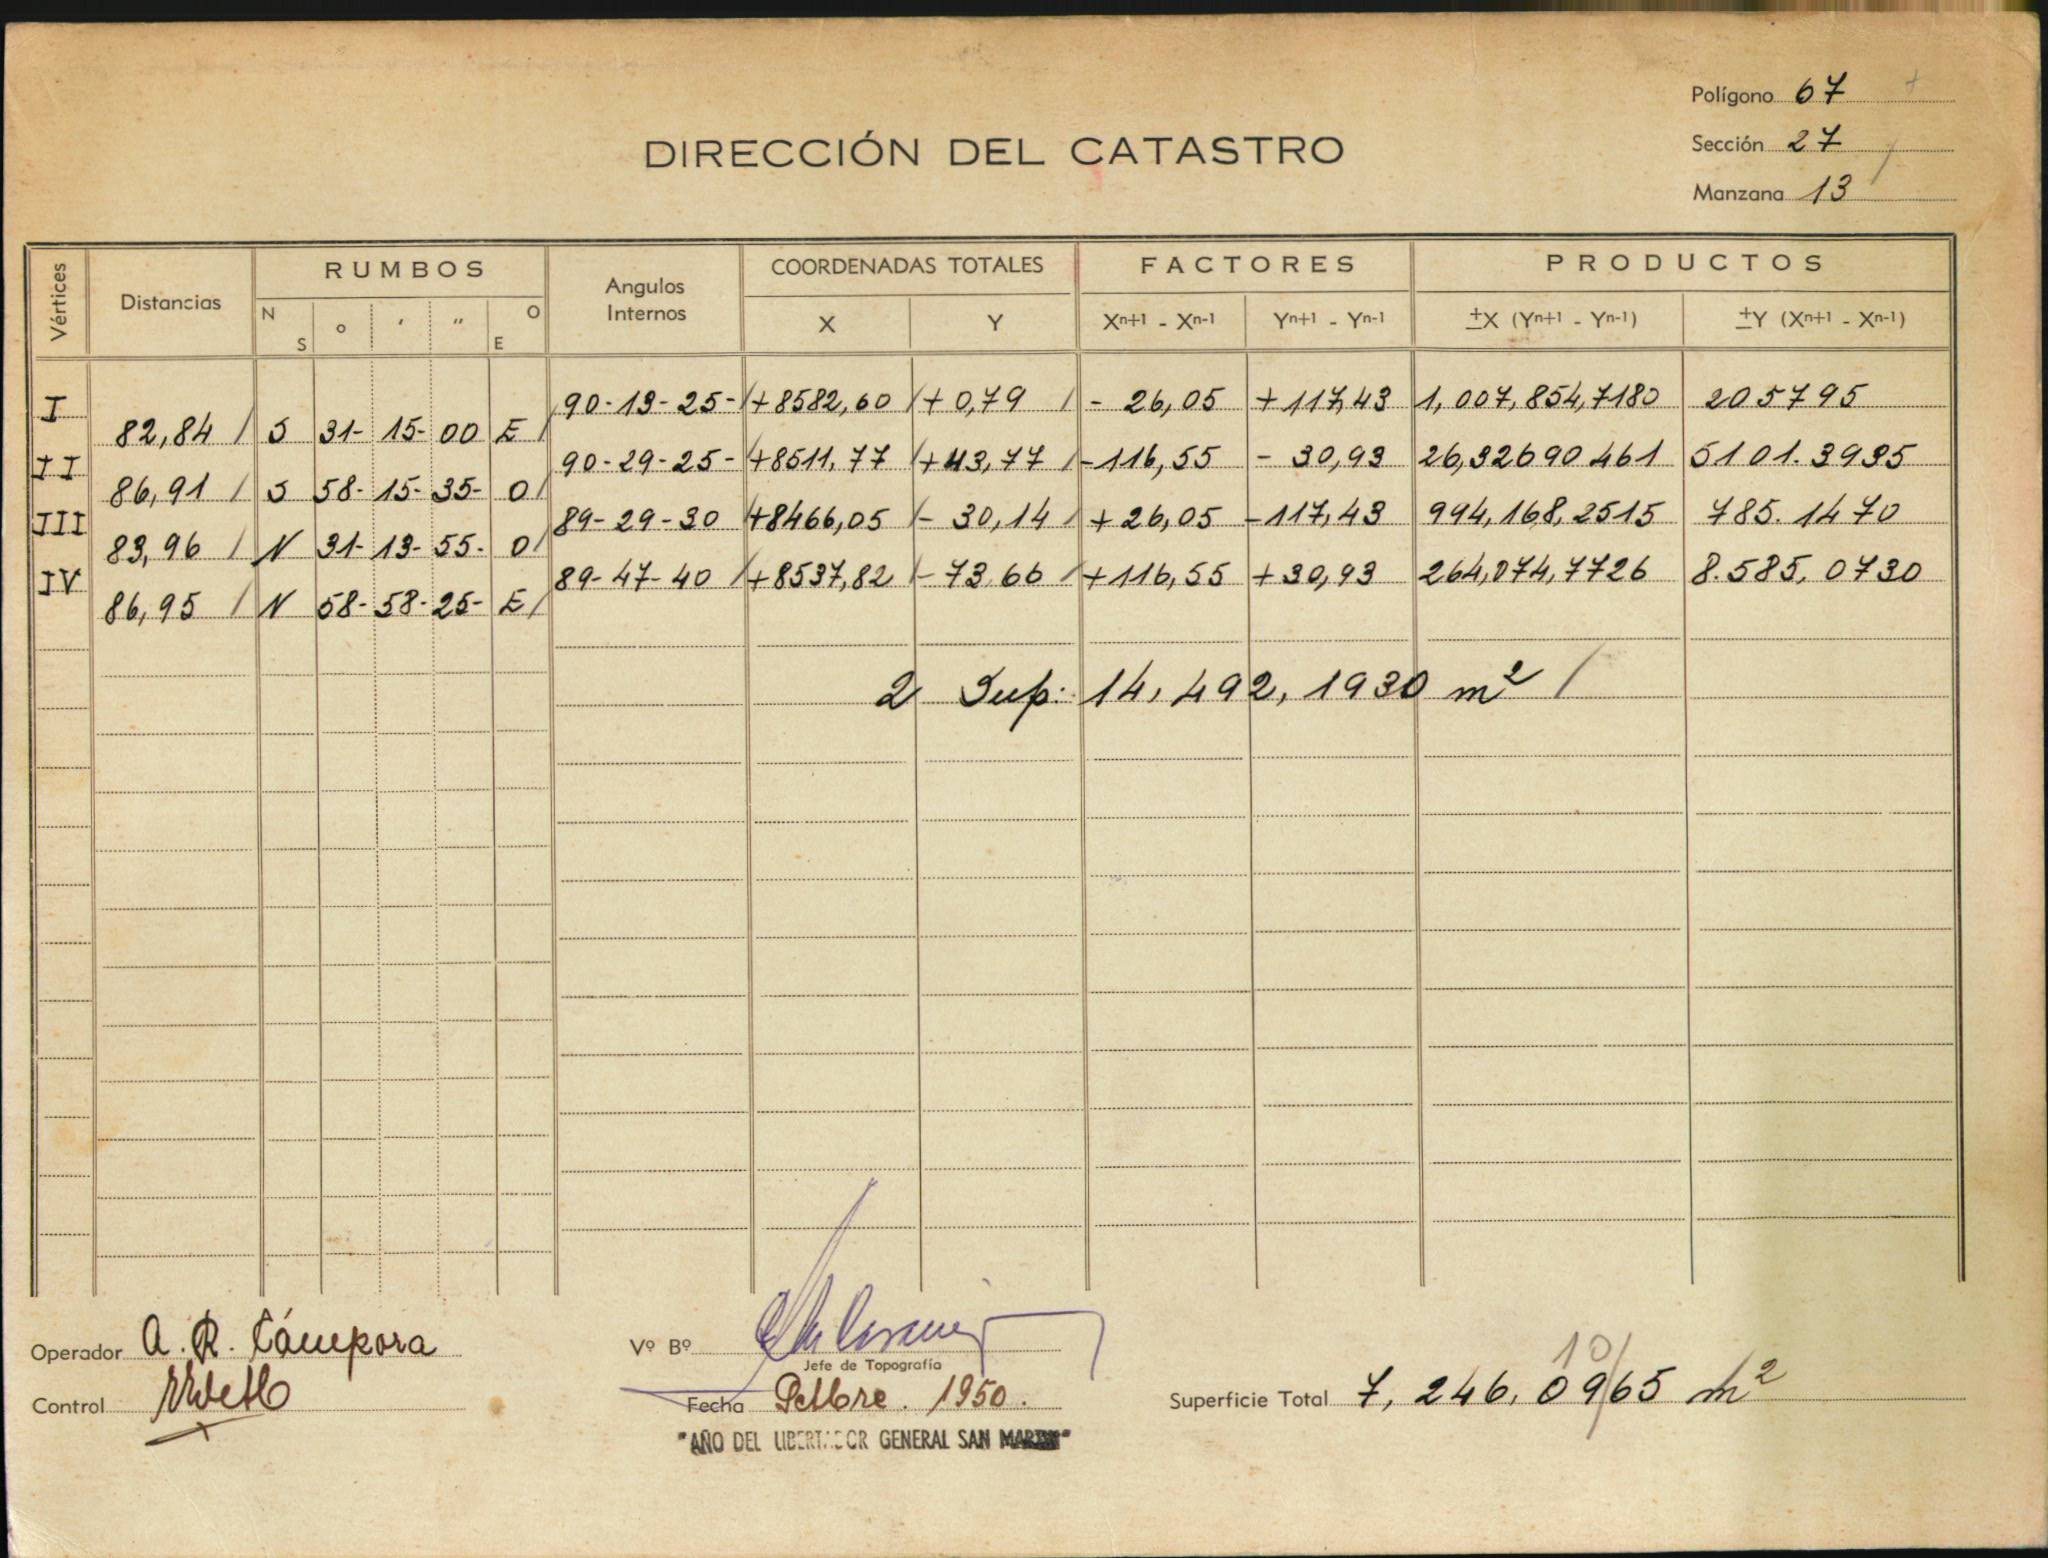 Polígono 67
DIRECCIÓN DEL CATASTRO
Sección 27
Manzana 13
Vértices Distancias RUMBOS Angulos Internos COORDENADAS TOTALES FACTORES PRODUCTOS
N S ° ′ ″ O E X Y Xn+1 - Xn-1 Yn+1 - Yn-1 ±X (Yn+1 - Yn-1) ±Y (Xn+1 - Xn-1)
I 90-13-25- +8582,60 +0,79 - 26,05 +117,43 1,007,854,7180 205795
82,84 S 31- 15- 00 E
II 90-29-25- +8511,77 +43,77 -116,55 - 30,93 26,32690461 5101.3935
86,91 S 58- 15- 35- O
III 89-29-30 +8466,05 - 30,14 +26,05 -117,43 994,168,2515 785.1470
83,96 N 31- 13- 55- O
IV 89-47-40 +8537,82 -73,66 +116,55 +30,93 264,074,7726 8.585,0730
86,95 N 58- 58- 25- E
2 Sup: 14,492,1930 m²
Operador A. R. Cámpora
Vº Bº
Jefe de Topografía
10
Control
Fecha Setbre. 1950.
Superficie Total 7,246,0965 m²
"AÑO DEL LIBERTADOR GENERAL SAN MARTIN"